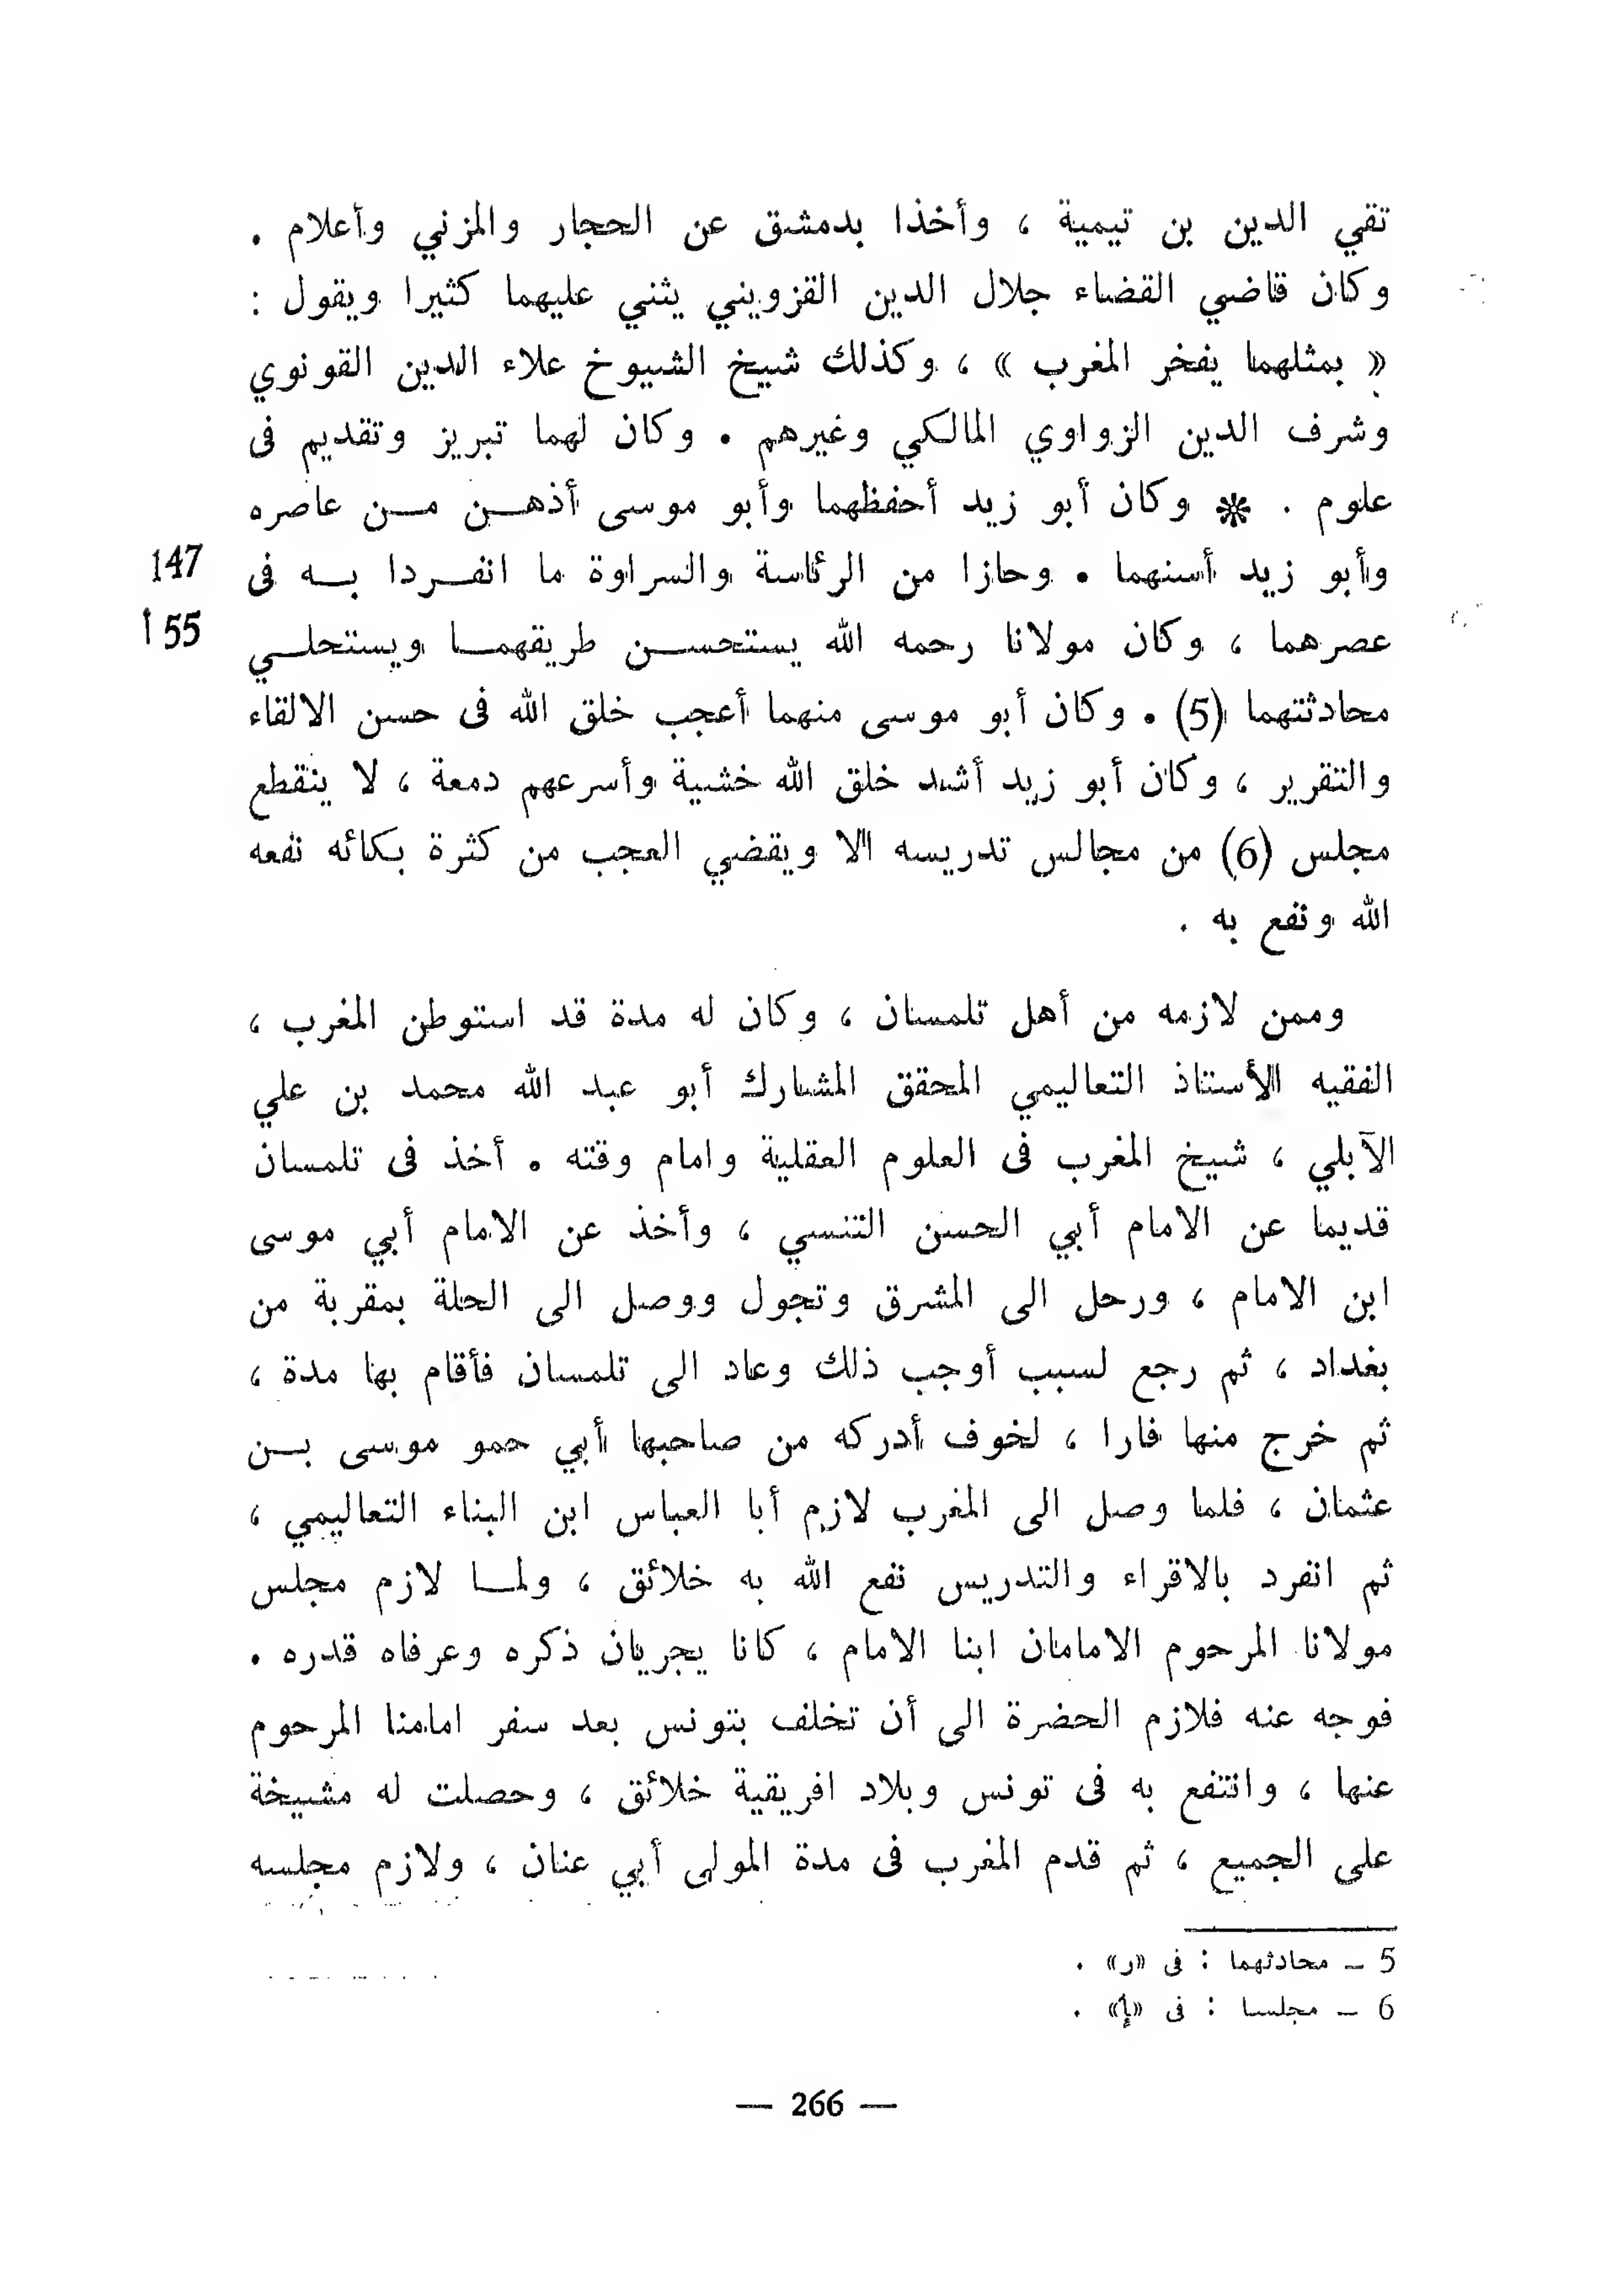 تقي الدين بن تيمية ، وأخذا بدمشق عن الحجار والمزني وأعلام .
وكان قاضي القضاء جلال الدين القزويني يثني عليهما كثيرا ويقول :
« بمثلهما يفخر المغرب » ، وكذلك شيخ الشيوخ علاء الدين القونوي
وشرف الدين الزواوي المالكي وغيرهم . وكان لهما تبريز وتقديم فى
علوم . * وكان أبو زيد أحفظهما وأبو موسى أذهن من عاصره
وأبو زيد أسنهما . وحازا من الرئاسة والسراوة ما انفردا به فى
147
عصرهما ، وكان مولانا رحمه الله يستحسن طريقهما ويستحلي
55 أ
محادثتهما (5) . وكان أبو موسى منهما أعجب خلق الله فى حسن الالقاء
والتقرير ، وكان أبو زيد أشد خلق الله خشية وأسرعهم دمعة ، لا ينقطع
مجلس (6) من مجالس تدريسه الا ويقضي العجب من كثرة بكائه نفعه
الله ونفع به .
وممن لازمه من أهل تلمسان ، وكان له مدة قد استوطن المغرب ،
الفقيه الأستاذ التعاليمي المحقق المشارك أبو عبد الله محمد بن علي
الآبلي ، شيخ المغرب فى العلوم العقلية وامام وقته . أخذ فى تلمسان
قديما عن الامام أبي الحسن التنسي ، وأخذ عن الامام أبي موسى
ابن الامام ، ورحل الى المشرق وتجول ووصل الى الحلة بمقربة من
بغداد ، ثم رجع لسبب أوجب ذلك وعاد الى تلمسان فأقام بها مدة ،
ثم خرج منها فارا ، لخوف أدركه من صاحبها أبي حمو موسى بن
عثمان ، فلما وصل الى المغرب لازم أبا العباس ابن البناء التعاليمي ،
ثم انفرد بالاقراء والتدريس نفع الله به خلائق ، ولما لازم مجلس
مولانا المرحوم الامامان ابنا الامام ، كانا يجريان ذكره وعرفاه قدره .
فوجه عنه فلازم الحضرة الى أن تخلف بتونس بعد سفر امامنا المرحوم
عنها ، وانتفع به فى تونس وبلاد افريقية خلائق ، وحصلت له مشيخة
على الجميع ، ثم قدم المغرب فى مدة المولى أبي عنان ، ولازم مجلسه
5 ـ محادثهما : فى «ر» .
6 ـ مجلسا : فى «إ» .
— 266 —